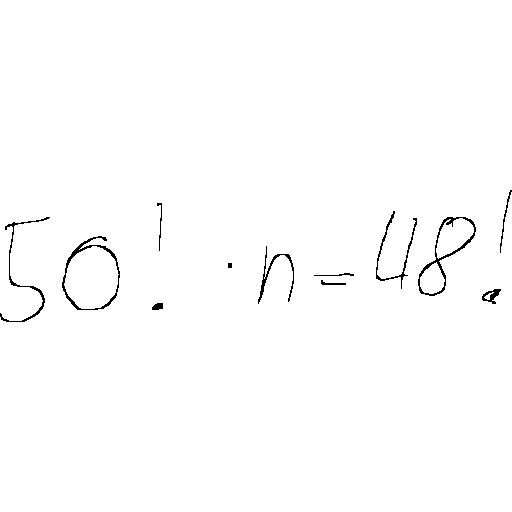 50! · n = 48!